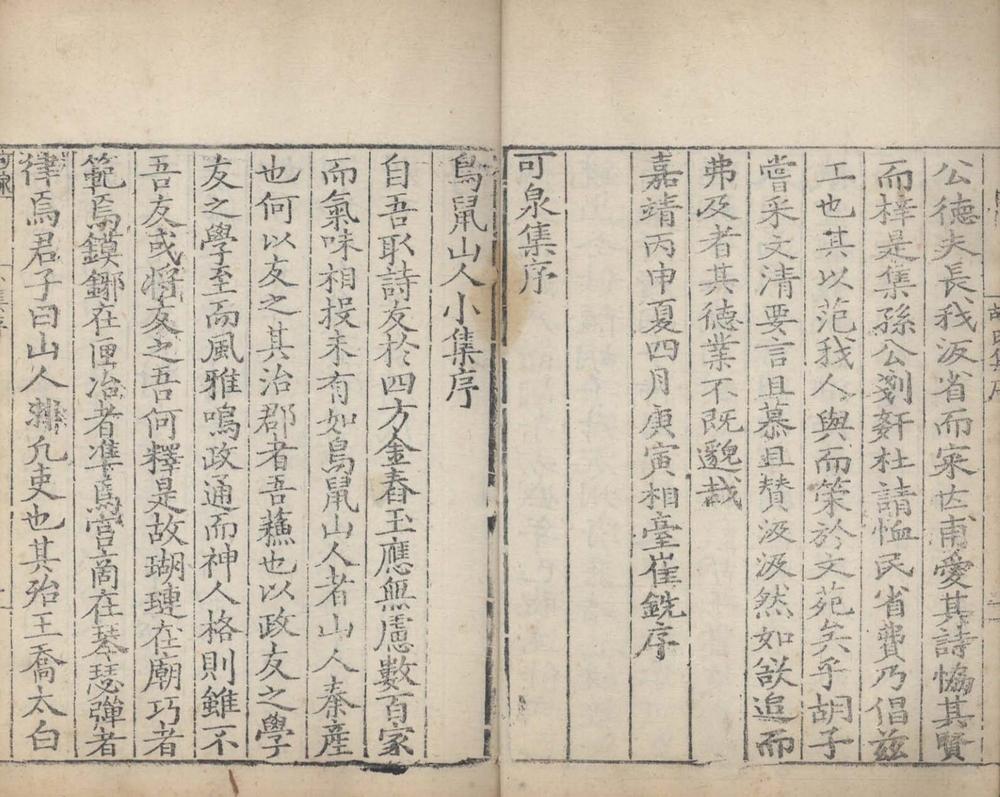 公德夫長我汳省而寀㐀甫愛其詩恊其賢
而梓是集孫公剗奸杜請恤民省費乃倡兹
工也其以范我人與而策於文苑矣乎胡子
嘗采文清要言且慕且賛汲汲然如欲追而
弗及者其德業不既邈哉
嘉靖丙申夏四月庚寅相臺崔銑序
可泉集序
鳥鼠山人小集序
自吾取詩友於四方金舂玉應無慮數百家
而氣味相投未有如鳥鼠山人者山人秦產
也何以友之其治郡者吾蘓也以政友之學
友之學至而風雅鳴政通而神人格則雖不
吾友或將友之吾何釋是故瑚璉在廟巧者
範焉鏌鋣在匣冶者準焉宫商在琴瑟彈者
律焉君子曰山人雜凢吏也其殆王喬太白